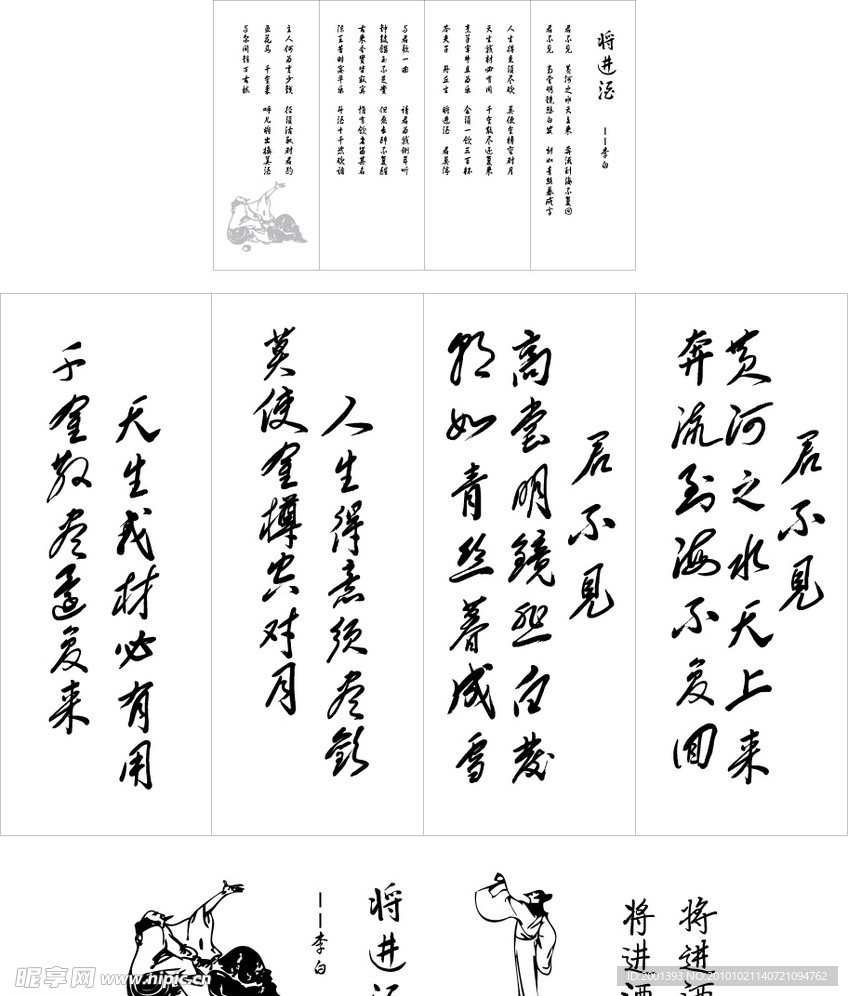 将进酒
——李白
君不见 黄河之水天上来 奔流到海不复回
君不见 高堂明镜悲白发 朝如青丝暮成雪
人生得意须尽欢 莫使金樽空对月
天生我材必有用 千金散尽还复来
烹羊宰牛且为乐 会须一饮三百杯
岑夫子 丹丘生 将进酒 君莫停
与君歌一曲 请君为我倾耳听
钟鼓馔玉不足贵 但愿长醉不复醒
古来圣贤皆寂寞 惟有饮者留其名
陈王昔时宴平乐 斗酒十千恣欢谑
主人何为言少钱 径须沽取对君酌
五花马 千金裘 呼儿将出换美酒
与尔同销万古愁
君不见
黄河之水天上来
奔流到海不复回
君不见
高堂明镜悲白发
朝如青丝暮成雪
人生得意须尽欢
莫使金樽空对月
天生我材必有用
千金散尽还复来
将进酒
将进酒
将进酒
——李白
昵享网 www.nipic.cn
ID:2001393 NO:20101021140721094762